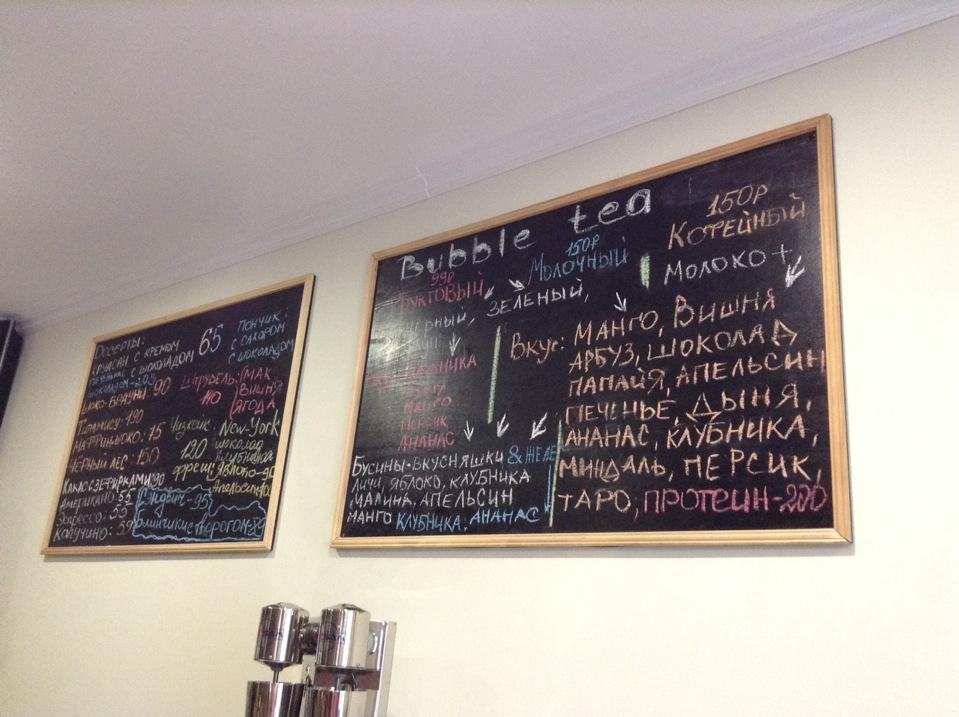 Десерты:
с кремом
с шоколадом
65
Пончик:
с сахаром
с шоколадом
Шоко-брауни: 90
Штрудель:
110
Мак
Вишня
Ягода
Тирамису: 190
Чёрный лес: 150
Чизкейк:
120
New-York
шоколад
клубника
фреш:
Яблоко-90
Апельсин
Какао с зефирками 90
Американо: 55
Эспрессо: 55
Сэндвич-95
Блинчики с творогом-
Bubble tea
99р
150р
Молочный
150р
Кофейный
Молоко+
зеленый,
Вкус:
Манго, Вишня
Арбуз, Шоколад
Папайя, Апельсин
Печенье, Дыня,
Ананас, Клубника,
Миндаль, Персик,
Таро, Протеин-200
Манго
Персик
Ананас
Бусины-вкусняшки & желе
Личи, яблоко, клубника
малина, апельсин
манго клубника, ананас